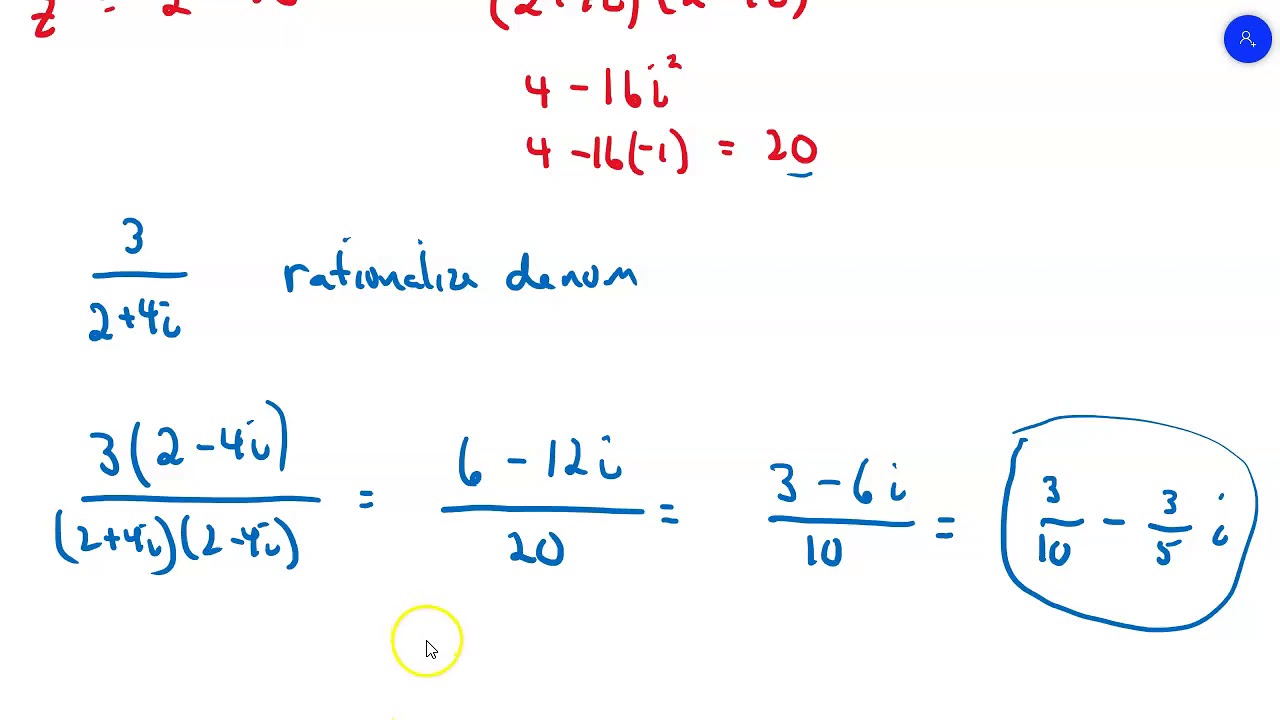 4 - 16i²
4 - 16(-1) = 20
3/(2+4i) rationalize denom
3(2-4i)/((2+4i)(2-4i)) = (6 - 12i)/20 = (3 - 6i)/10 = 3/10 - 3/5 i